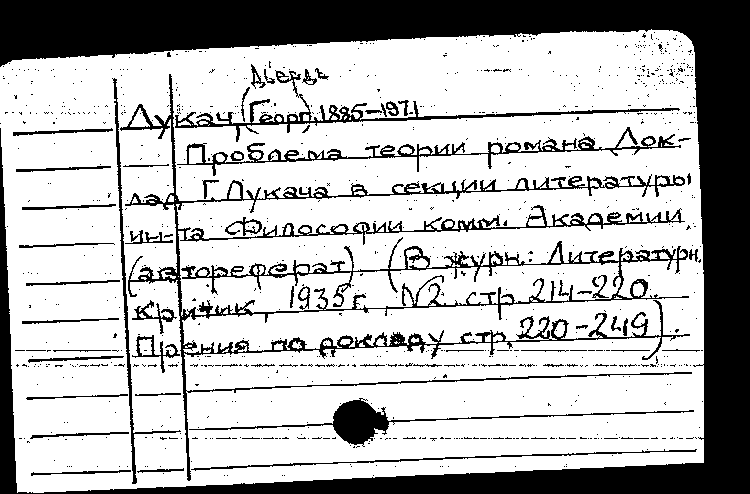 Дьердь
Лукач, (Георг), 1885-1971
Проблема теории романа. Док-
лад Г. Лукача в секции литературы
ин-та Философии комм. Академии.
(автореферат). (В журн.: Литературн.
критик, 1935 г., №2. стр. 214-220.
Прения по докладу стр. 220-249).